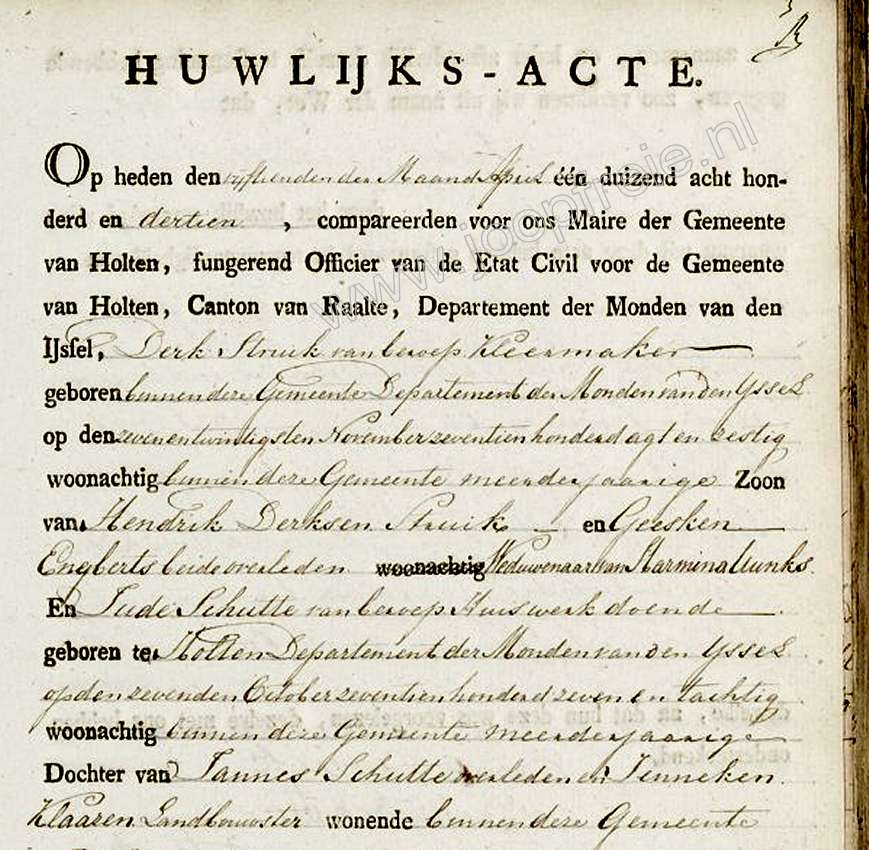 HUWLIJKS-ACTE.
Op heden den vyftienden der Maand April één duizend acht hon-
derd en dertien, compareerden voor ons Maire der Gemeente
van Holten, fungerend Officier van de Etat Civil voor de Gemeente
van Holten, Canton van Raalte, Departement der Monden van den
IJssel, Derk Struik van beroep Kleermaker
geboren binnen deze Gemeente Departement der Monden van den Yssel
op den zevenentwintigsten November zeventienhonderd agt en zestig
woonachtig binnen deze Gemeente meerderjaarige Zoon
van Hendrik Derksen Struik en Geesken
Engberts beide overleden woonachtig Weduwenaar van Harmina Uunks
En Jude Schutte van beroep Huiswerk doende
geboren te Holten Departement der Monden van den Yssel
op den zevenden October zeventienhonderd zeven en tachtig
woonachtig binnen deze Gemeente meerderjaarige
Dochter van Jannes Schutte overleden en Jenneken
Klaazen Landbouwster wonende binnen deze Gemeente
www.jaapfreije.nl